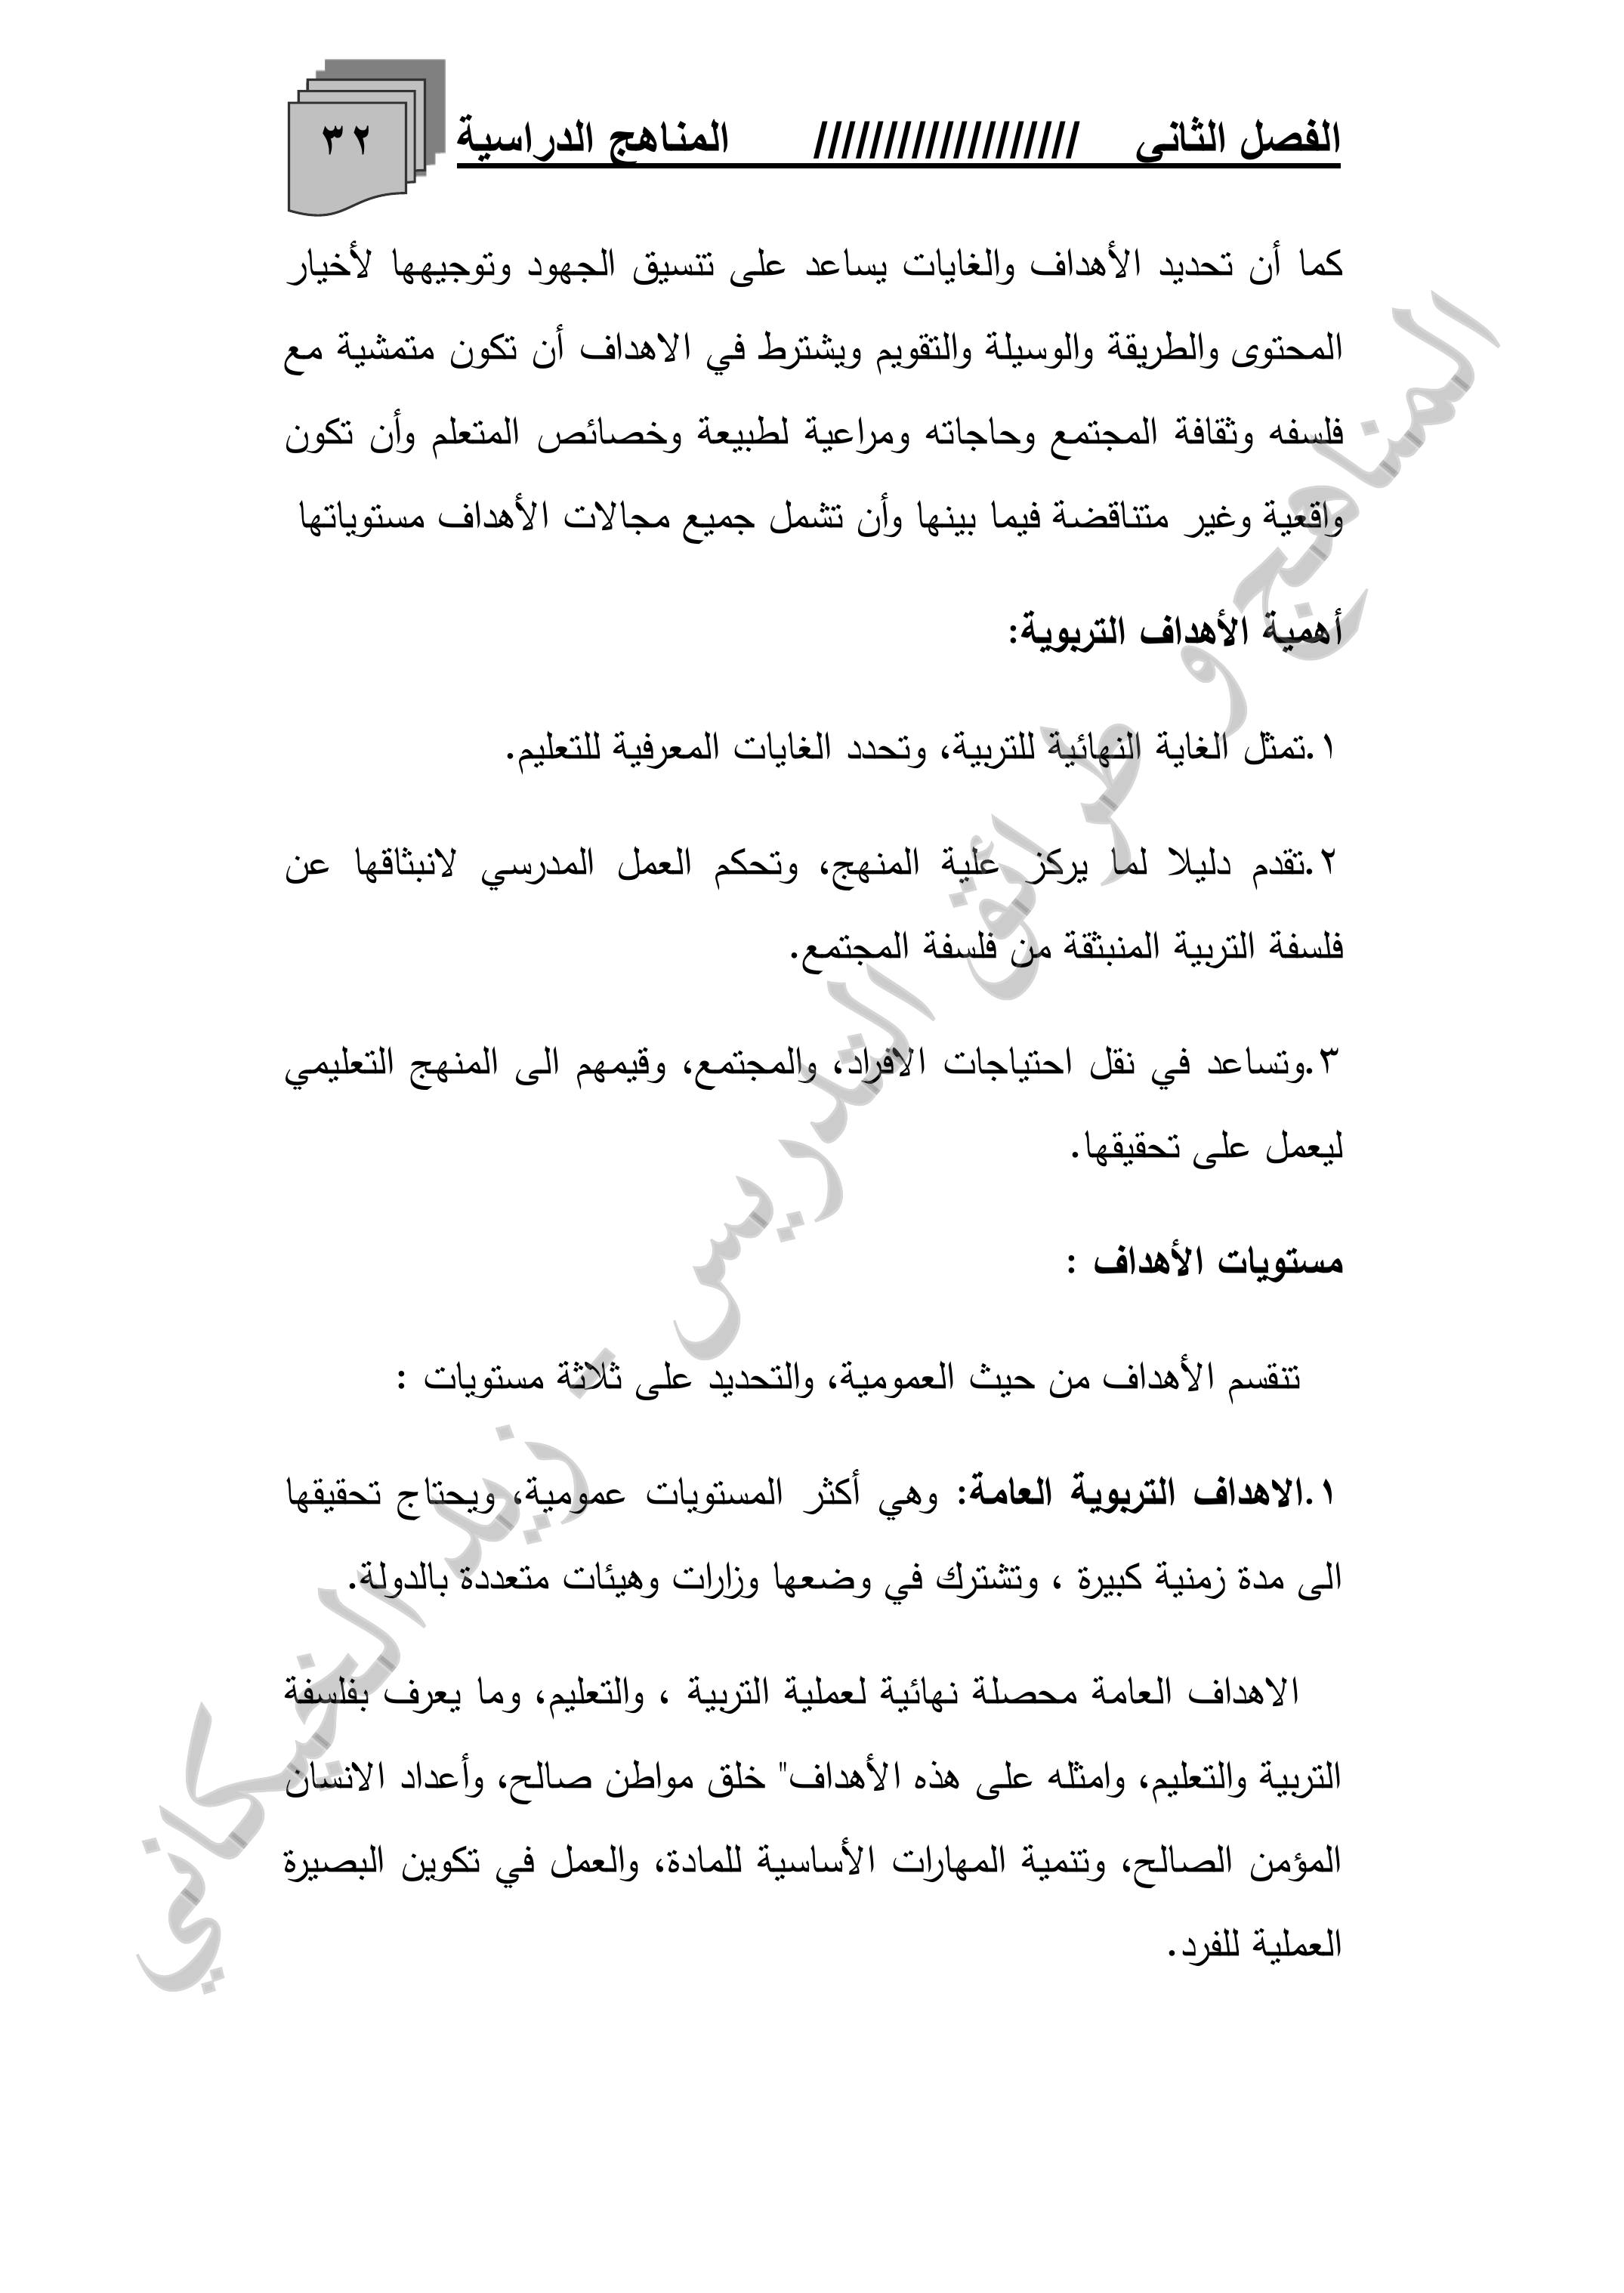 الفصل الثاني /////////////////// المناهج الدراسية ٣٢
كما أن تحديد الأهداف والغايات يساعد على تتسيق الجهود وتوجيهها لأخيار
المحتوى والطريقة والوسيلة والتقويم ويشترط في الاهداف أن تكون متمشية مع
فلسفه وثقافة المجتمع وحاجاته ومراعية لطبيعة وخصائص المتعلم وأن تكون
واقعية وغير متناقضة فيما بينها وأن تشمل جميع مجالات الأهداف مستوياتها
أهمية الأهداف التربوية:
١.تمثل الغاية النهائية للتربية، وتحدد الغايات المعرفية للتعليم.
٢.تقدم دليلا لما يركز علية المنهج، وتحكم العمل المدرسي لانبثاقها عن
فلسفة التربية المنبثقة من فلسفة المجتمع.
٣.وتساعد في نقل احتياجات الافراد، والمجتمع، وقيمهم الى المنهج التعليمي
ليعمل على تحقيقها.
مستويات الأهداف :
تتقسم الأهداف من حيث العمومية، والتحديد على ثلاثة مستويات :
١.الاهداف التربوية العامة: وهي أكثر المستويات عمومية، ويحتاج تحقيقها
الى مدة زمنية كبيرة ، وتشترك في وضعها وزارات وهيئات متعددة بالدولة.
الاهداف العامة محصلة نهائية لعملية التربية ، والتعليم، وما يعرف بفلسفة
التربية والتعليم، وامثله على هذه الأهداف" خلق مواطن صالح، وأعداد الانسان
المؤمن الصالح، وتنمية المهارات الأساسية للمادة، والعمل في تكوين البصيرة
العملية للفرد.
المناهج و طرائق التدريس - زيد الخيكاني